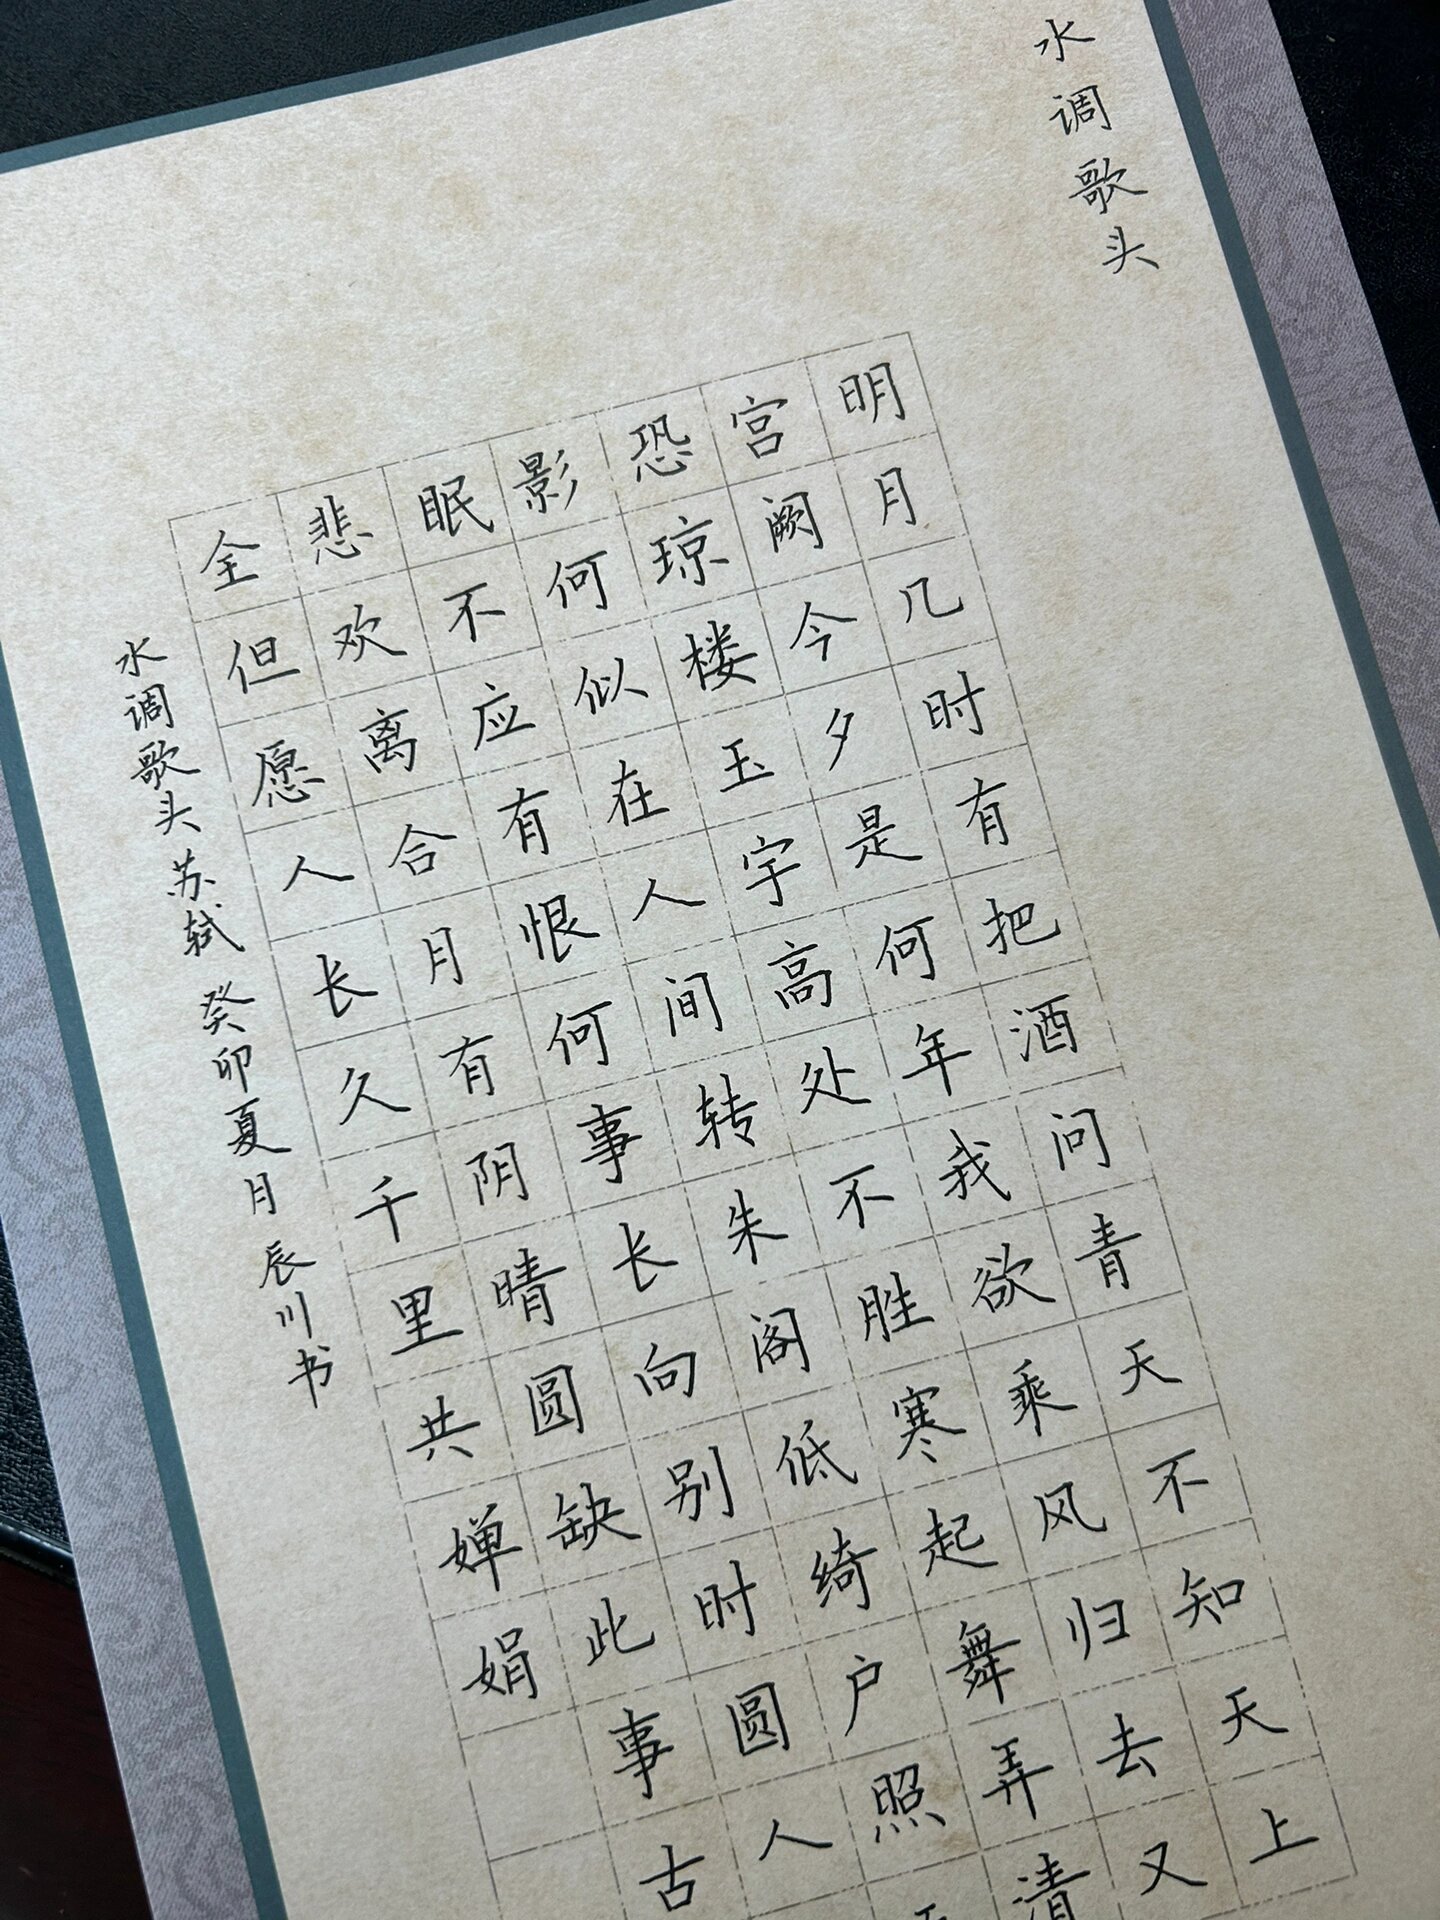 水调歌头
明月几时有把酒问青天不知天上
宫阙今夕是何年我欲乘风归去又
恐琼楼玉宇高处不胜寒起舞弄清
影何似在人间转朱阁低绮户照
眠不应有恨何事长向别时圆人
悲欢离合月有阴晴圆缺此事古
全但愿人长久千里共婵娟
水调歌头苏轼 癸卯夏月辰川书